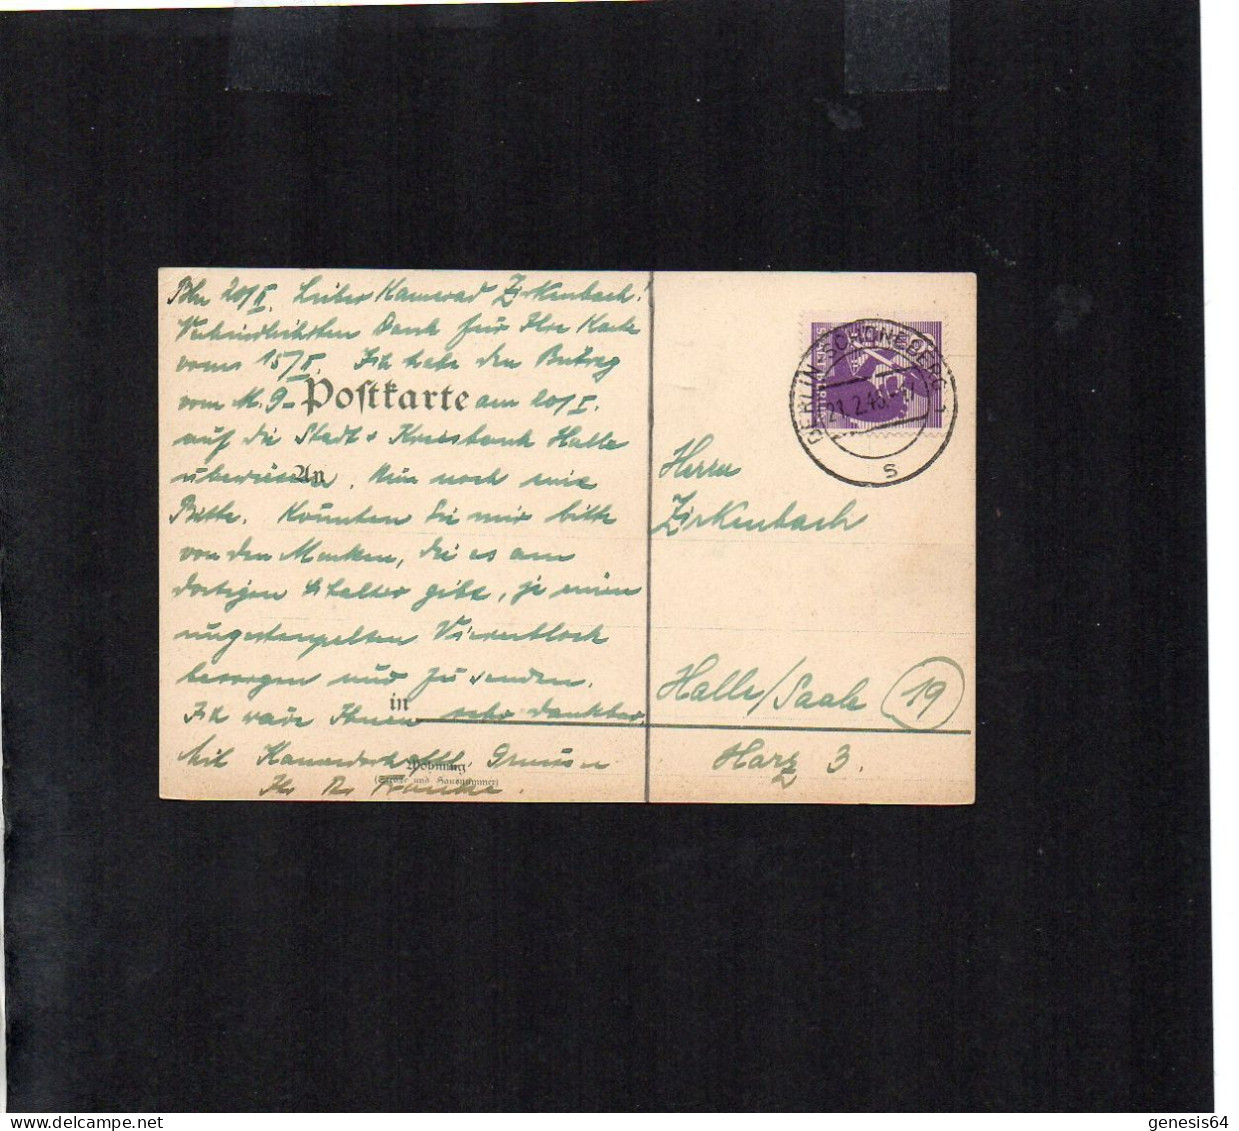 Bln 20/II. Lieber Kamerad Zirkenbach!
Verbindlichsten Dank für Ihre Karte
vom 15/II. Ich habe den Betrag
vom M. 9- Postkarte am 20/I.
auf die Stadt + Kreisbank Halle
überwiesen. Nun noch eine
An
Bitte. Könnten Sie mir bitte
von den Marken, die es am
dortigen Schalter gibt, je einen
ungestempelten Viererblock
besorgen und zusenden.
in
Ich wäre Ihnen sehr dankbar.
Mit Kameradschaftl. Grüssen
Wohnung
(Straße und Hausnummer)
Ihr
BERLIN-SCHÖNEBERG 1
21.2.46
s
Herrn
Zirkenbach
Halle/Saale 19
Harz 3.
genesis64